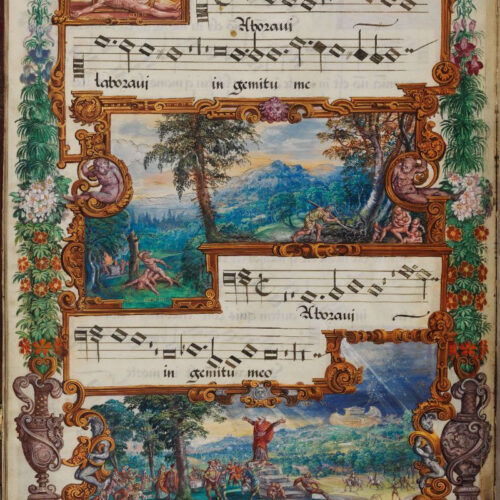 Aboraui
laboraui in gemitu me
Aboraui
in gemitu meo